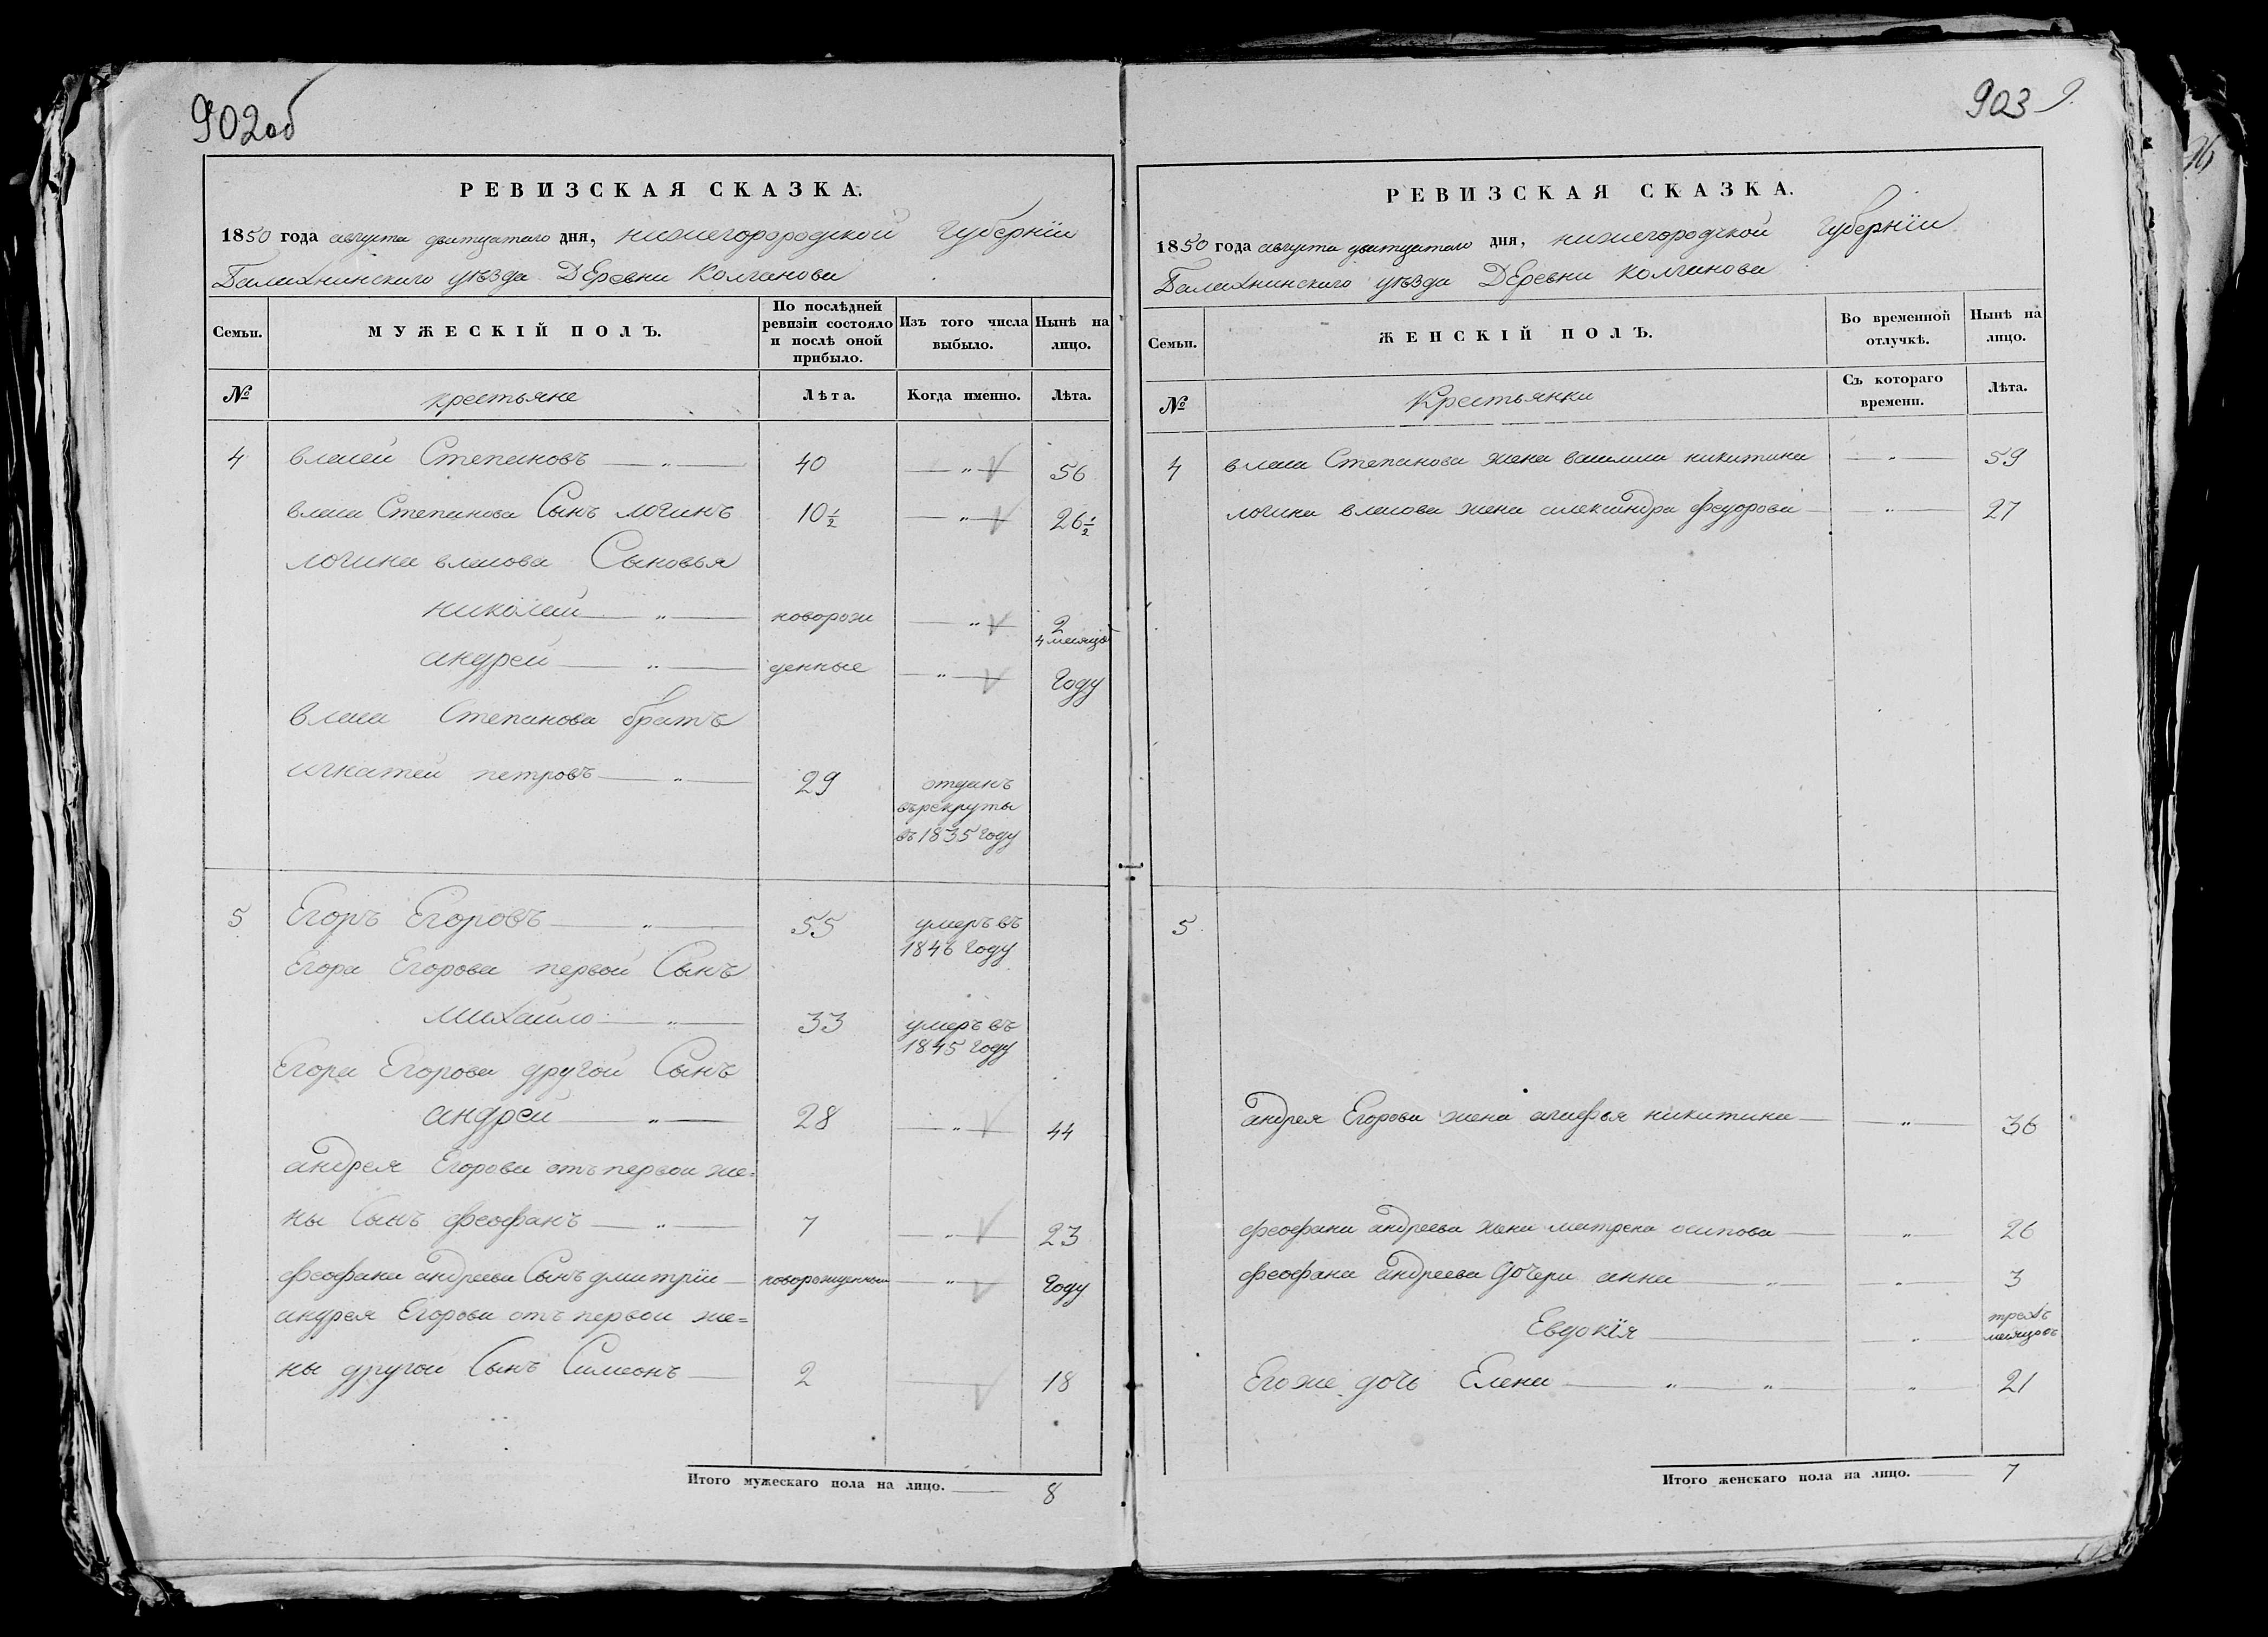 902об
РЕВИЗСКАЯ СКАЗКА.
1850 года августа дватцатаго дня, нижегорородской Губернїи
Балахнинскаго уѣзда ДЕревни Колчанова
Семьи.
МУЖЕСКІЙ ПОЛЪ.
По послѣдней ревизіи состояло и послѣ оной прибыло.
Изъ того числа выбыло.
Нынѣ на лицо.
№
крестьяне
Лѣта.
Когда именно.
Лѣта.
4 власей Степановъ — „ — 40 — „ — 56
власа Степанова Сынъ логинъ 10½ — „ — 26½
логина власова Сыновья
николай — „ — новорож — „ — 2
4 месяцов
андрей — „ — денные — „ — Году
власа Степанова братъ
игнатей петровъ — „ 29 отданъ
въ рекруты
въ 1835 Году
5 Егоръ Егоровъ — „ — 55 умеръ въ
1846 Году
Егора Егорова первой Сынъ
михайло — „ — 33 умеръ въ
1845 Году
Егора Егорова другой Сынъ
андрей — „ — 28 — „ — 44
андрея Егорова отъ первои же=
ны Сынъ феофанъ — „ — 7 — „ — 23
феофана андреева Сынъ дмитрїи — новорожденныи — „ — Году
андрея Егорова отъ первои же=
ны другой Сынъ Симеонъ — 2 — 18
Итого мужескаго пола на лицо. — 8
903
9
РЕВИЗСКАЯ СКАЗКА.
1850 года августа дватцатаго дня, нижегородчкой Губернїи
Балахнинскаго уѣзда ДЕревни Колчанова
Семьи.
ЖЕНСКІЙ ПОЛЪ.
Во временной отлучкѣ.
Нынѣ на лицо.
№
Крестьянки
Съ котораго времени.
Лѣта.
4 власа Степанова жена василиса никитина — „ — 59
логина власова жена александра федорова — „ — 27
5
андрея Егорова жена агафья никитина — „ — 36
феофана андреева жена матрена осипова — „ — 26
феофана андреева дочери анна — „ — „ — 3
Евдокїя — „ — трехъ
месяцовъ
Его же дочь Елена — „ — „ — „ — 21
Итого женскаго пола на лицо. — 7